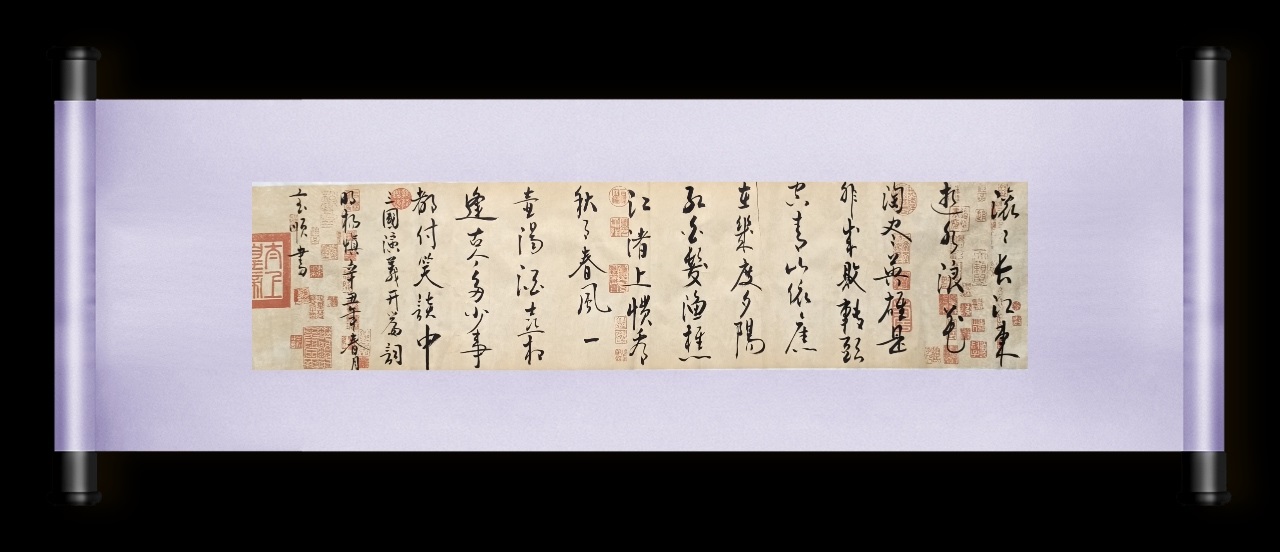 滾〻长江東
逝水浪花
淘尽英雄是
非成敗轉頭
空青山依舊
在幾度夕陽
紅白髮漁樵
江渚上慣看
秋月春風一
壺濁酒喜相
逢古今多少事
都付笑談中
三國演義开篇詞
明楊慎辛丑年春月
順書